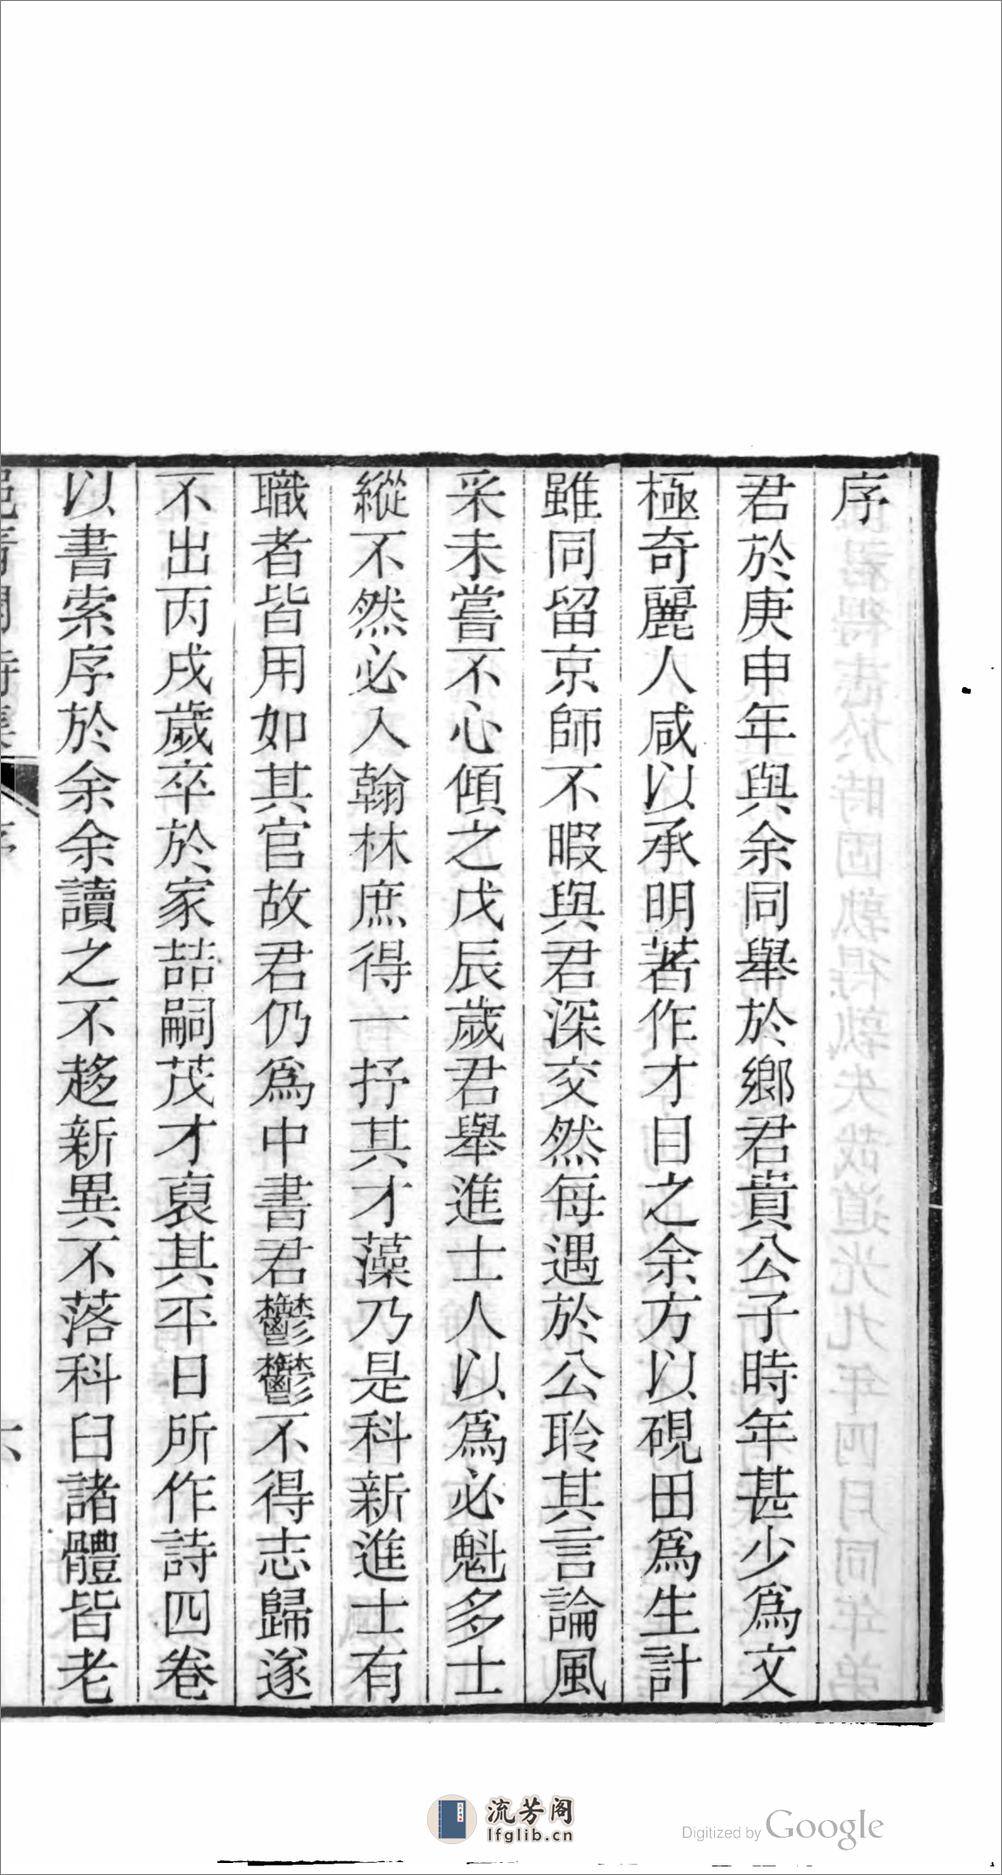 序
君於庚申年與余同舉於鄉君貴公子時年甚少爲文
極奇麗人咸以承明著作才目之余方以硯田爲生計
雖同留京師不暇與君深交然每遇於公聆其言論風
采未嘗不心傾之戊辰歲君舉進士人以爲必魁多士
縱不然必入翰林庶得一抒其才藻乃是科新進士有
職者皆用如其官故君仍爲中書君鬱鬱不得志歸遂
不出丙戌歲卒於家喆嗣茂才裒其平日所作詩四卷
以書索序於余余讀之不趍新異不落科臼諸體皆老
流芳阁
lfglib.cn
Digitized by Google